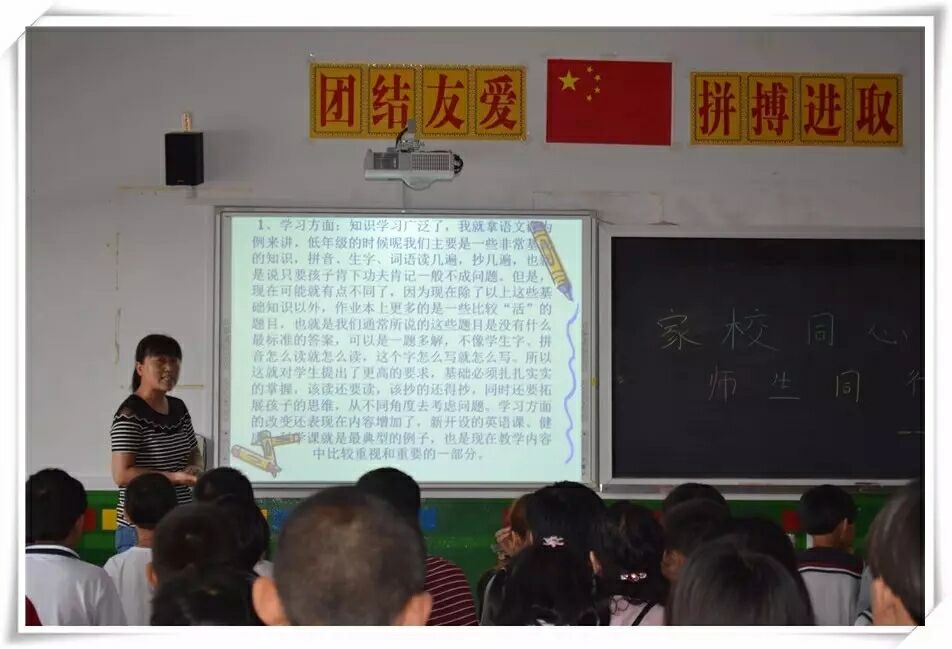 团结友爱
拼搏进取
1、学习方面：知识学习广泛了，我就拿语文课为
例来讲，低年级的时候呢我们主要是一些非常基
的知识，拼音、生字、词语读几遍，抄几遍，也就
是说只要孩子肯下功夫肯记一般不成问题。但是，
现在可能就有点不同了，因为现在除了以上这些基
础知识以外，作业本上更多的是一些比较“活”的
题目，也就是我们通常所说的这些题目是没有什么
最标准的答案，可以是一题多解，不像生字、拼
音怎么读就怎么读，这个字怎么写就怎么写。所以
这就对学生提出了更高的要求，基础必须扎扎实实
的掌握，该读还要读，该抄的还得抄，同时还要拓
展孩子的思维，从不同角度去考虑问题。学习方面
的改变还表现在内容增加了，新开设的英语课、健
学课就是最典型的例子，也是现在教学内容
中比较重视和重要的一部分。
家校同心
师生同行